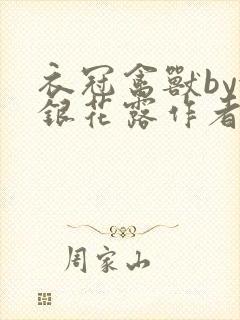 衣冠禽獸by
銀花露作者
周家山